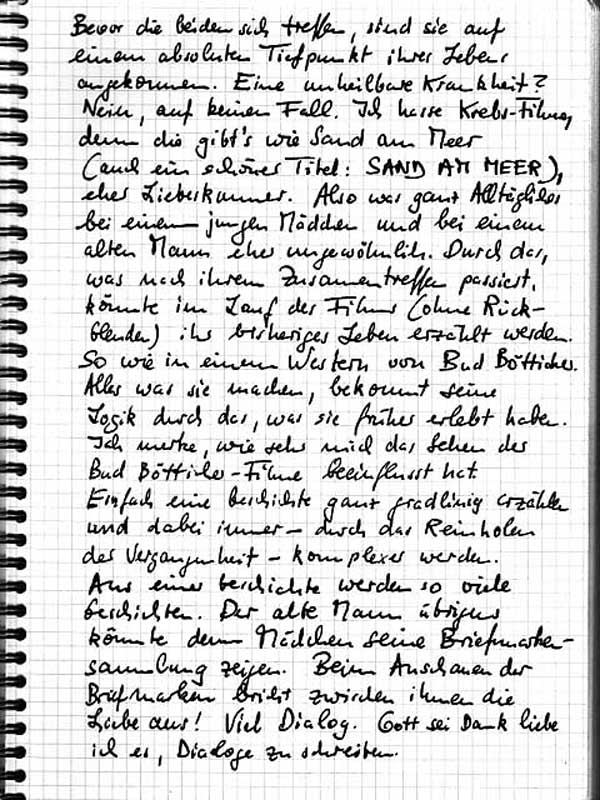 Bevor die beiden sich treffen, sind sie auf
einem absoluten Tiefpunkt ihres Lebens
angekommen. Eine unheilbare Krankheit?
Nein, auf keinen Fall. Ich hasse Krebs-Filme,
denn die gibt's wie Sand am Meer
(auch ein schöner Titel: SAND AM MEER),
eher Liebeskummer. Also was ganz Alltägliches
bei einem jungen Mädchen und bei einem
alten Mann eher ungewöhnlich. Durch das,
was nach ihrem Zusammentreffen passiert,
könnte im Lauf des Films (ohne Rück-
blenden) ihr bisheriges Leben erzählt werden.
So wie in einem Western von Bud Bötticher.
Alles was sie machen, bekommt seine
Logik durch das, was sie früher erlebt haben.
Ich merke, wie sehr mich das Sehen der
Bud Bötticher-Filme beeinflusst hat.
Einfach eine Geschichte ganz gradlinig erzählen
und dabei immer – durch das Reinholen
der Vergangenheit – komplexer werden.
Aus einer Geschichte werden so viele
Geschichten. Der alte Mann übrigens
könnte dem Mädchen seine Briefmarken-
sammlung zeigen. Beim Anschauen der
Briefmarken bricht zwischen ihnen die
Liebe aus! Viel Dialog. Gott sei Dank liebe
ich es, Dialoge zu schreiben.